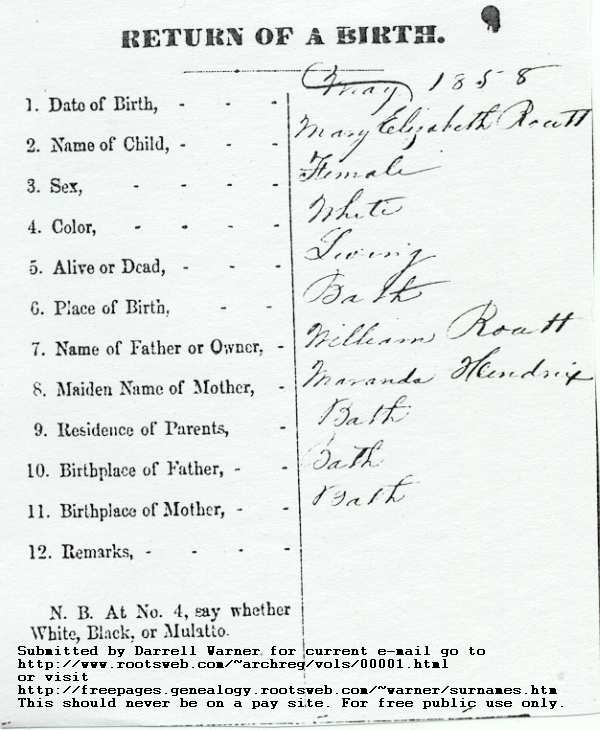 RETURN OF A BIRTH.
1. Date of Birth, - - - May 1858
2. Name of Child, - - - Mary Elizabeth Routt
3. Sex, - - - - - Female
4. Color, - - - - White
5. Alive or Dead, - - - Living
6. Place of Birth, - - Bath
7. Name of Father or Owner, - William Routt
8. Maiden Name of Mother, - Maranda Hendrix
9. Residence of Parents, - Bath
10. Birthplace of Father, - - Bath
11. Birthplace of Mother, - - Bath
12. Remarks, - - - -
N. B. At No. 4, say whether
White, Black, or Mulatto.
Submitted by Darrell Warner for current e-mail go to
http://www.rootsweb.com/~archreg/vols/00001.html
or visit
http://freepages.genealogy.rootsweb.com/~warner/surnames.htm
This should never be on a pay site. For free public use only.